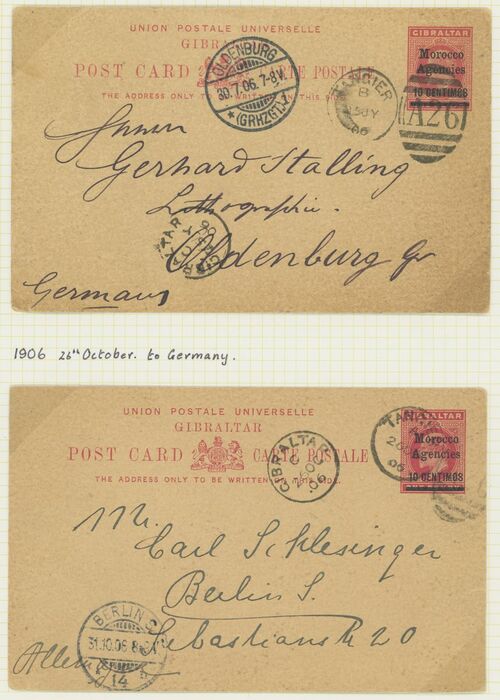 UNION POSTALE UNIVERSELLE
GIBRALTAR
POST CARD CARTE POSTALE
THE ADDRESS ONLY TO BE WRITTEN ON THIS SIDE.
GIBRALTAR
Morocco
Agencies
10 CENTIMOS
OLDENBURG
30.7.06.7-8V.
(GRHZGT.)1
TANGIER
B
JY
06
A26
Herrn
Gerhard Stalling
Lithographie.
Oldenburg Gr
Germany
GIBRALTAR
1906 26th October. to Germany.
UNION POSTALE UNIVERSELLE
GIBRALTAR
POST CARD CARTE POSTALE
THE ADDRESS ONLY TO BE WRITTEN ON THIS SIDE.
GIBRALTAR
Morocco
Agencies
10 CENTIMOS
GIBRALTAR
26 OC
06
TAN
26
06
Mr.
Carl Schlesinger
Berlin S.
Sebastianstr 20
BERLIN S
31.10.06.8-9
14